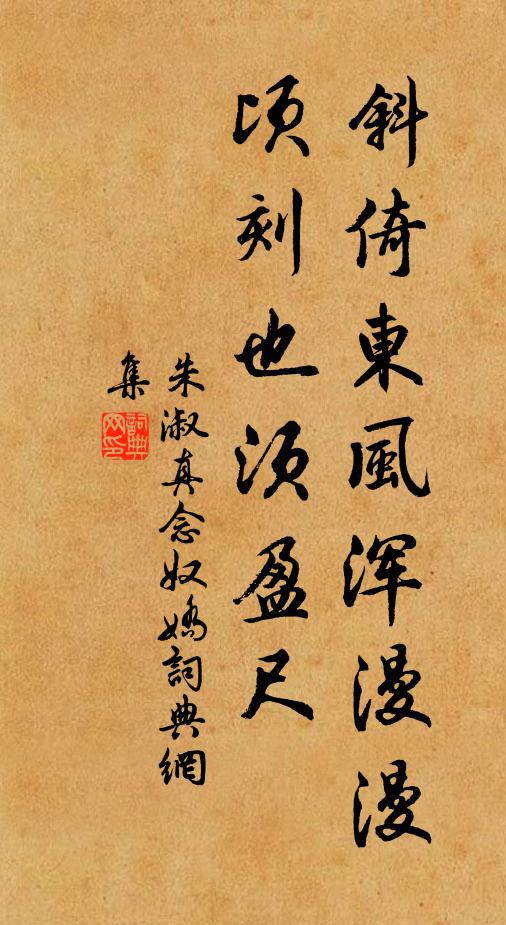 斜倚東風浑漫漫
頃刻也須盈尺
朱淑真念奴嬌詞典網
集
詞典网印